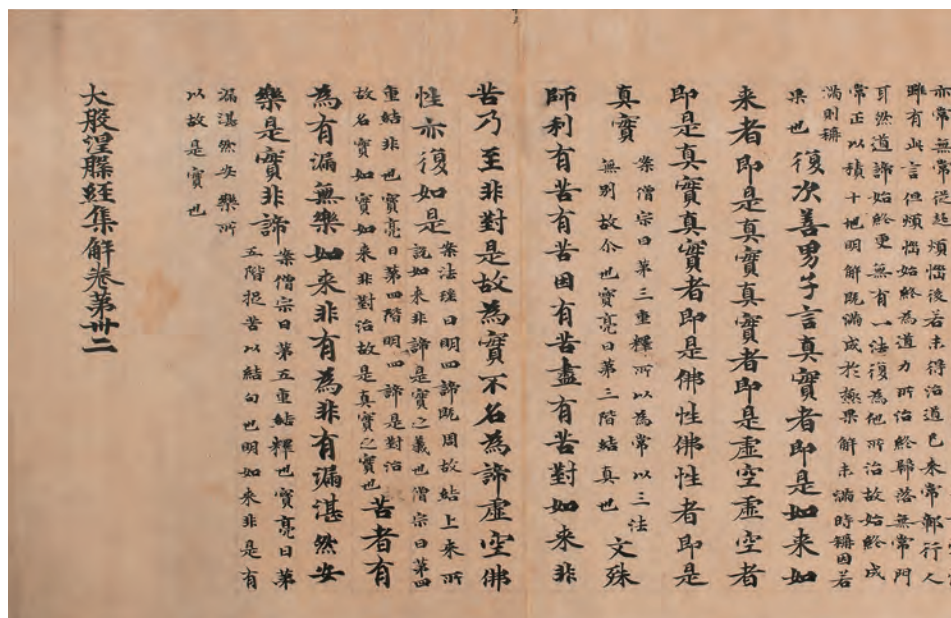 亦常無常従起煩惱後若未得治道已来常鄣行人
雖有此言但煩惱始終為道力所治終歸落無常門
耳然道諦始終更無有一法復為他所治故始終成
常正以積十地明解既滿成於極果解未滿時稱因若
滿則稱
果也復次善男子言真實者即是如来如
来者即是真實真實者即是虚空虚空者
即是真實真實者即是佛性佛性者即是
真實 案僧宗曰第三重釋所以為常以三法
無別故尒也寶亮曰第三階結真也 文殊
師利有苦有苦因有苦盡有苦對如来非
苦乃至非對是故為實不名為諦虚空佛
性亦復如是 案法瑶曰明四諦既周故結上来所
説如来非諦是實之義也僧宗曰第四
重結非也寶亮曰第四階明四諦是對治
故名實如實如来非對治故是真實之實也 苦者有
為有漏無樂如来非有為非有漏湛然安
樂是實非諦 案僧宗曰第五重結釋也寶亮曰第
五階捉苦以結句也明如来非是有
漏湛然安樂所
以故是實也
大般涅槃經集解卷第卌二